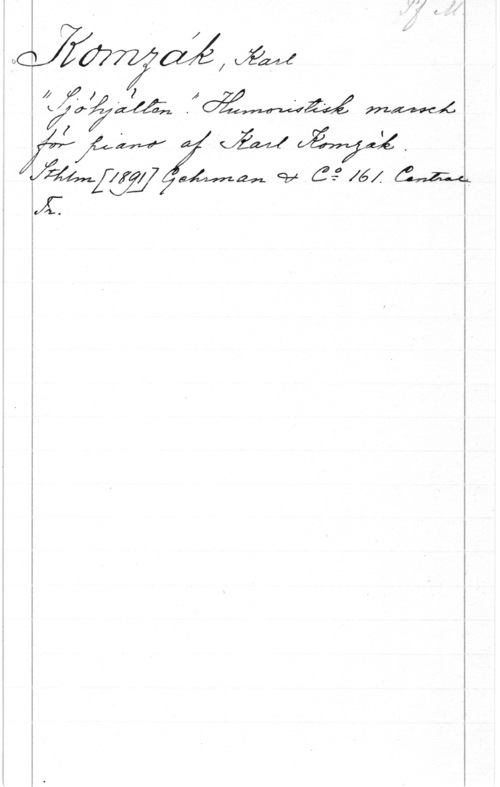 Pf M.
Komzák, Karl
"Sjöhjälten". Humoristisk marsch
för piano af Karl Komzák.
Sthlm [1891] Gehrman & Cº 161. Central
Tr.